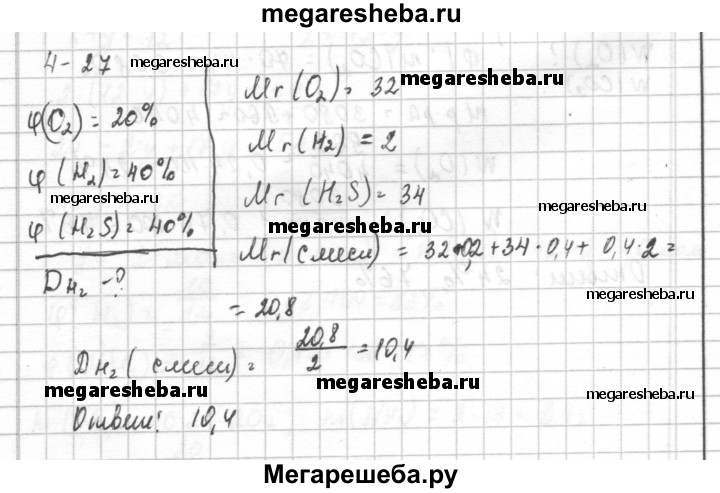 megaresheba.ru
4-27
Mr(O₂) = 32
megaresheba.ru
φ(O₂) = 20%
Mr(H₂) = 2
φ(H₂) = 40%
megaresheba.ru
Mr(H₂S) = 34
megaresheba.ru
φ(H₂S) = 40%
megaresheba.ru
Mr(смеси) = 32·0,2+34·0,4+0,4·2=
D H₂ -?
= 20,8
megaresheba.ru
D H₂ (смеси) = 20,8/2 = 10,4
megaresheba.ru
megaresheba.ru
megaresheba.ru
Ответ: 10,4
Мегарешеба.ру